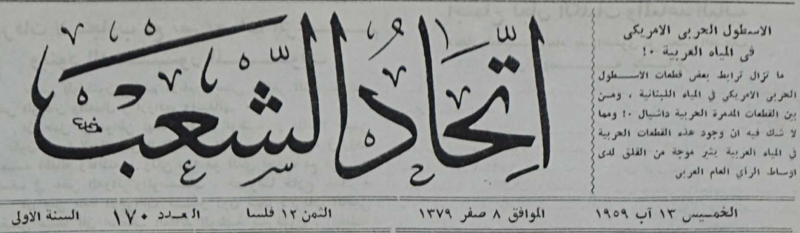 الاسطول الحربى الامريكى
فى المياه العربية ٠!
ما تزال ترابط بعض قطعات الاسـطول
الحربى الامريكى في المياه اللبنانية ، ومـن
بين القطعات المدمرة الحربية داشيال ٠! ومما
لا شك فيه ان وجود هذه القطعات الحربية
في المياه العربية يثير موجة من القلق لدى
اوساط الرأي العام العربي
اتحاد الشعب
الخميس ١٣ آب ١٩٥٩
الموافق ٨ صفر ١٣٧٩
الثمن ١٢ فلسا
العدد ١٧٠
السنة الاولى